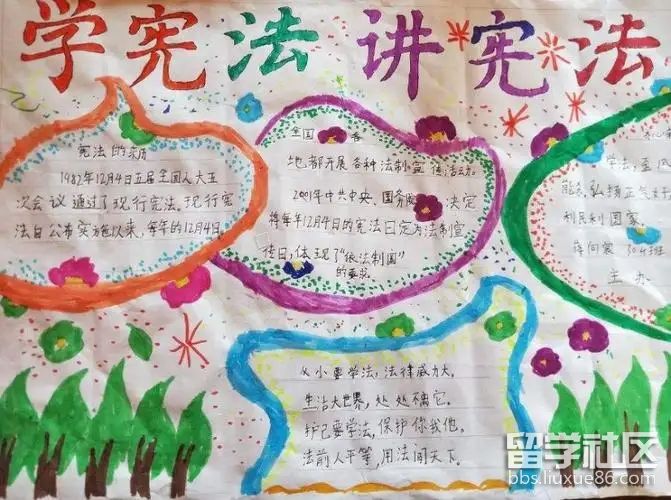 学宪法 讲宪法
宪法的来历
1982年12月4日五届全国人大五
次会议通过了现行宪法。现行宪
法自公布实施以来,每年的12月4日,
全国 各
地都开展各种法制宣传活动。
2001年中共中央、国务院 决定
将每年12月4日的宪法日定为法制宣
传日,体现了“依法制国”
的要求。
学法,
私扬正气
利民利国家,
304班
主办
从小要学法,法律威力大。
生活大世界,处处离它。
护己要学法,保护你我他。
法前人平等,用法闯天下。
留学社区
bbs.liuxue86.com